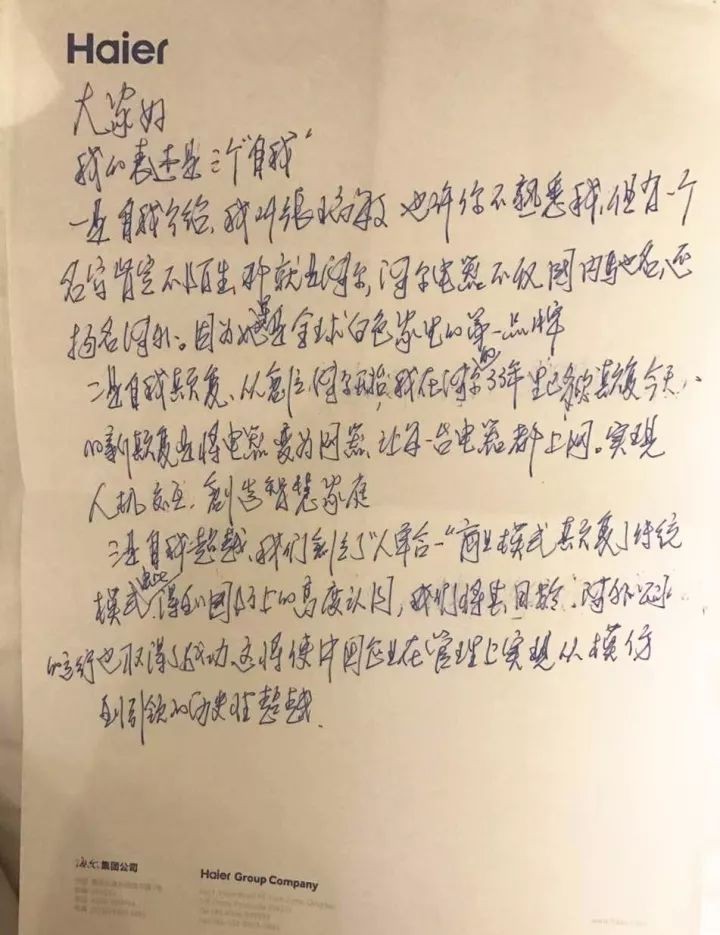 Haier
大家好
我的表述是三个"自我"
一是自我介绍,我叫张瑞敏 也许你不熟悉我,但有一个
名字肯定不陌生,那就是海尔,海尔电器不仅国内驰名,还
扬名海外。因为她是全球白色家电的第一品牌
二是自我颠复、从创立海尔开始,我在海尔的33年里已多次颠复今天
的新颠复是将电器变为网器,让每一台电器都上网。实现
人机交互,创造智慧家庭
三是自我超越,我们创立了"人单合一"商业模式颠复了传统
模式 得到国际上的高度认同,我们将其
的运行也取得了成功.这将使中国企业在管理上实现从模仿
到引领的历史性超越.
海尔集团公司
Haier Group Company